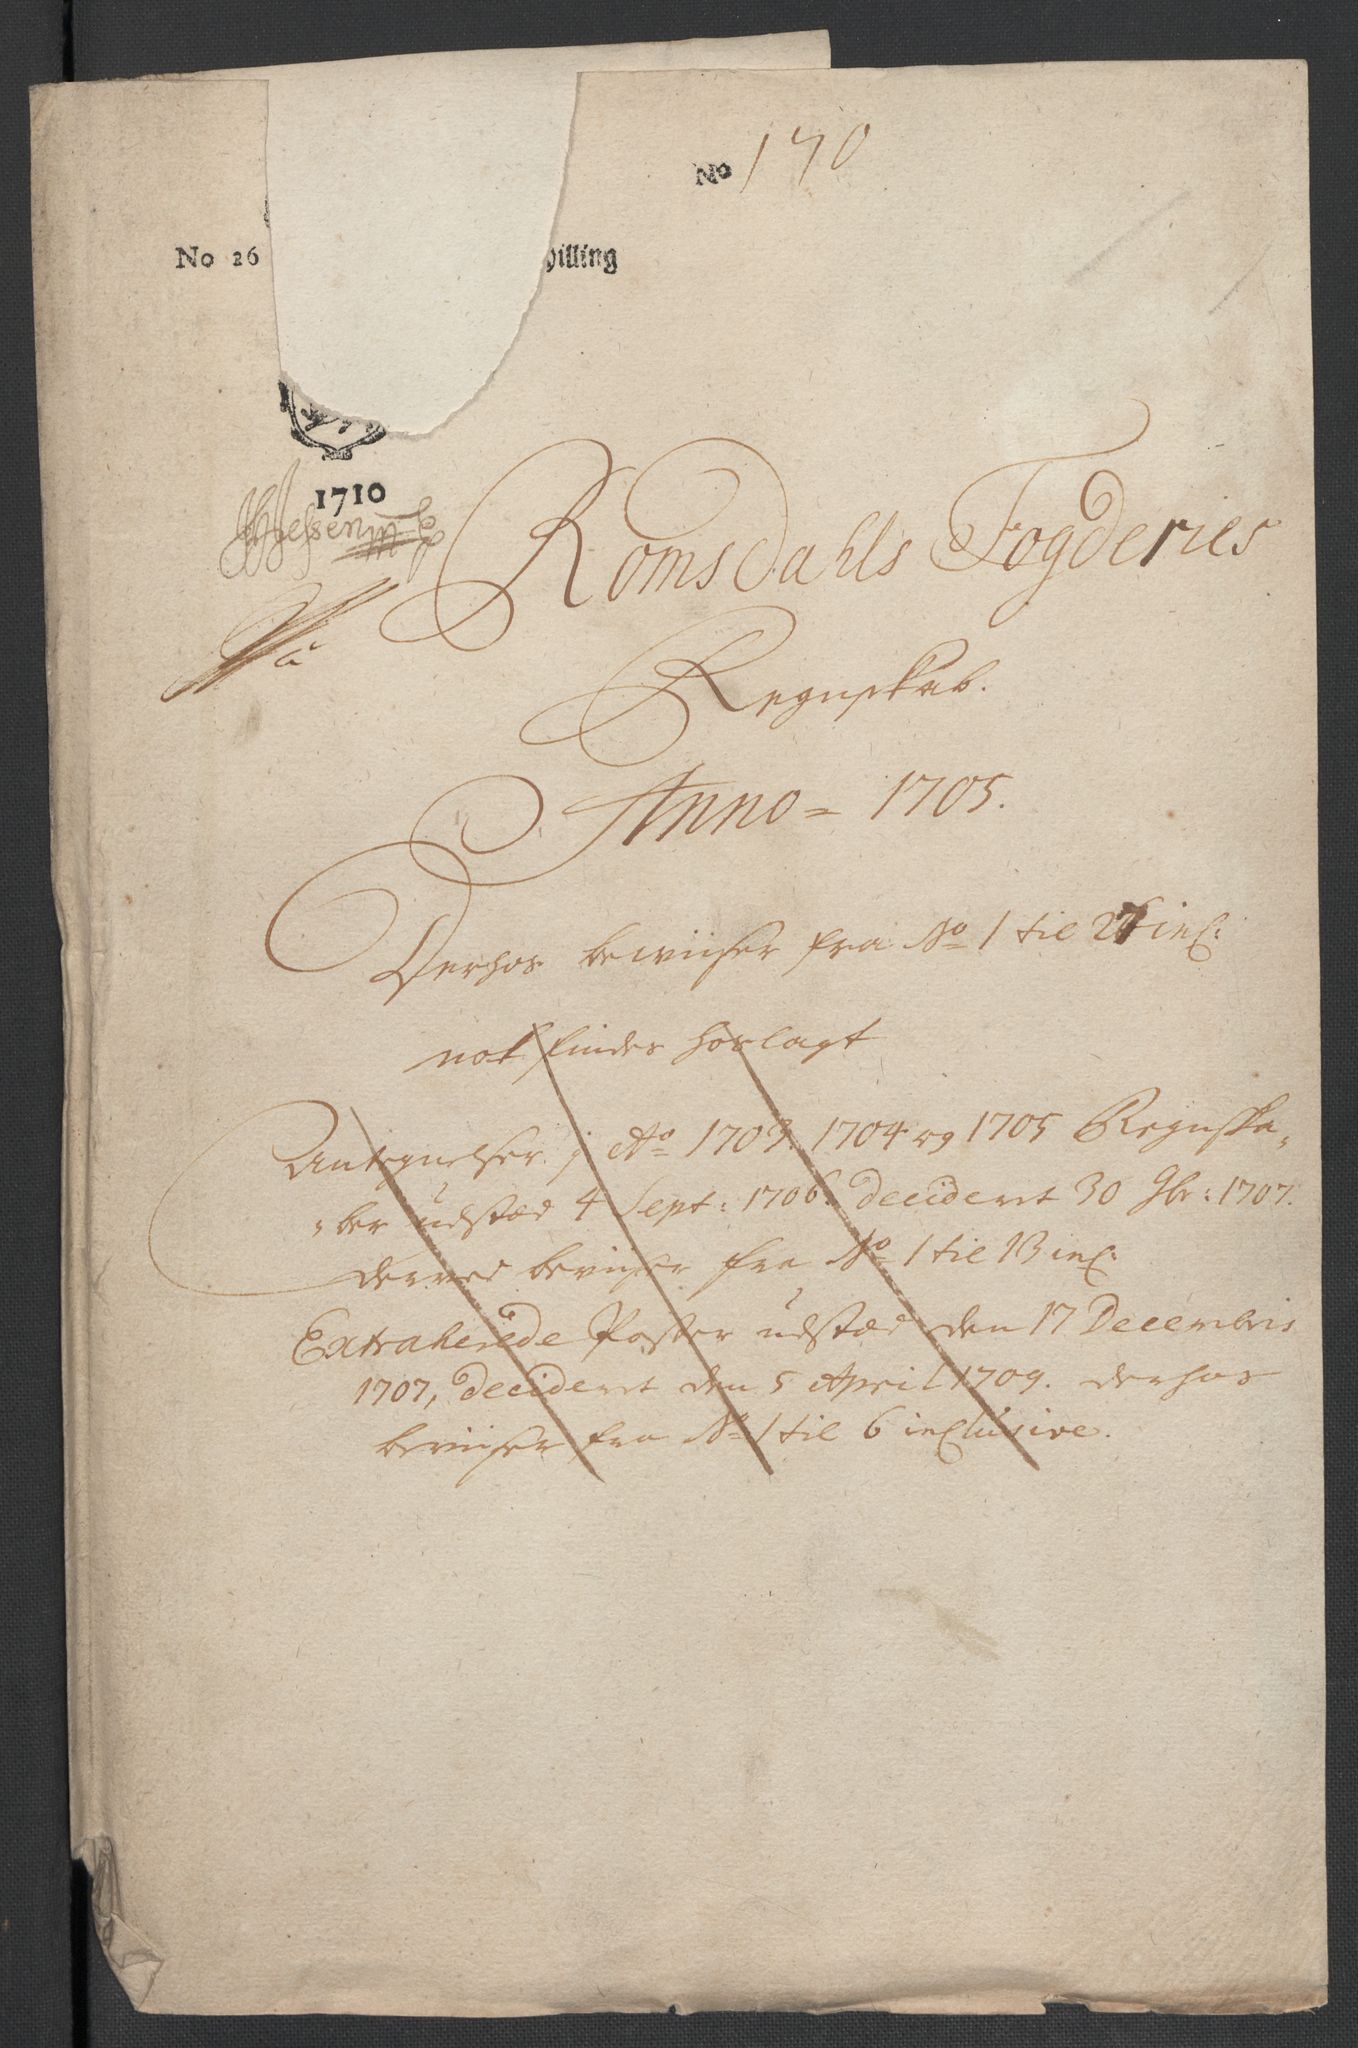 No 170
No 26 hilling
1710
Romsdahls Fogderies
Regnskab.
Anno = 1705.
Derhos beviiser fra No 1 til 26 incl:
not findes hoslagt
Antegnelser j Ao 1703. 1704 og 1705 Regnska-
-ber udstæd 4 Sept: 1706. Decideret 30 9br: 1707.
derved beviiser fra No 1 til 13 incl:
Extraherede Poster udstæd den 17 Decembris
1707, Decideret den 5 April 1709. derhos
beviiser fra No 1 til 6 inclusive.